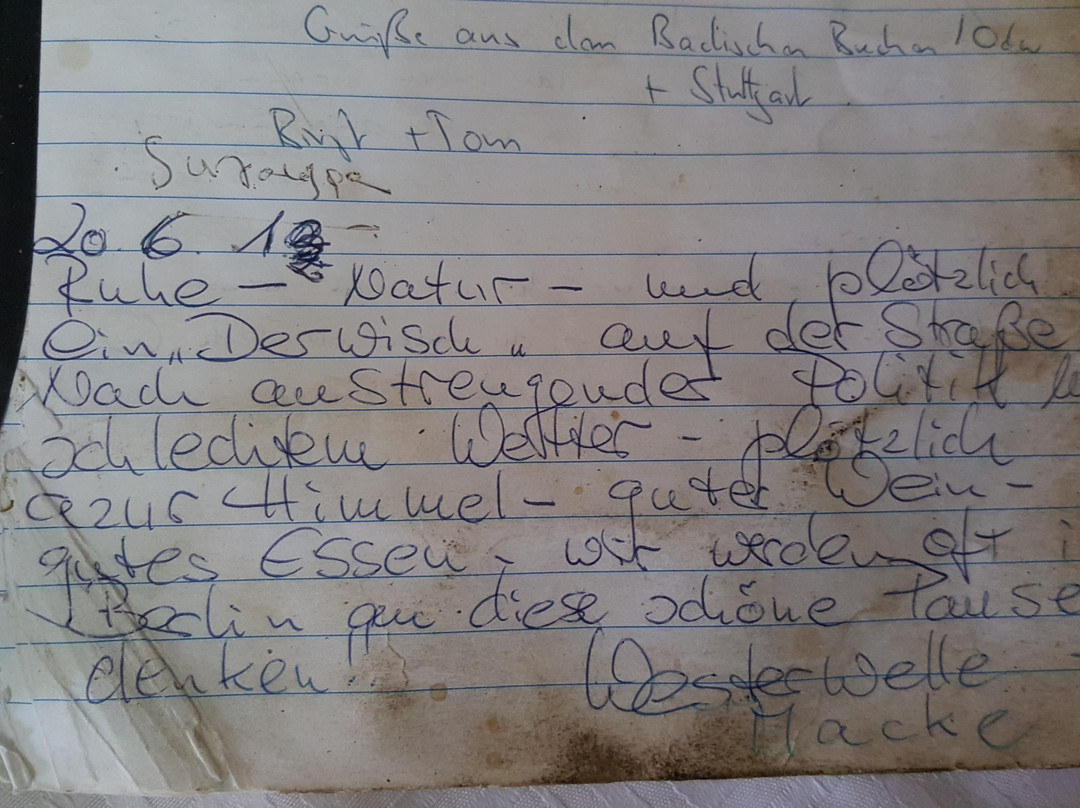 Grüße aus dem Badischen Buchen / Odw
+ Stuttgart
Birgit + Tom
20. 6. 1
Ruhe – Natur – und plötzlich
ein „Derwisch" auf der Straße
Nach anstrengender Politik
schlechtem Wetter – plötzlich
azur Himmel – guter Wein –
gutes Essen – wir werden oft i
Berlin an diese schöne Pause
denken!!
Westerwelle
Macke